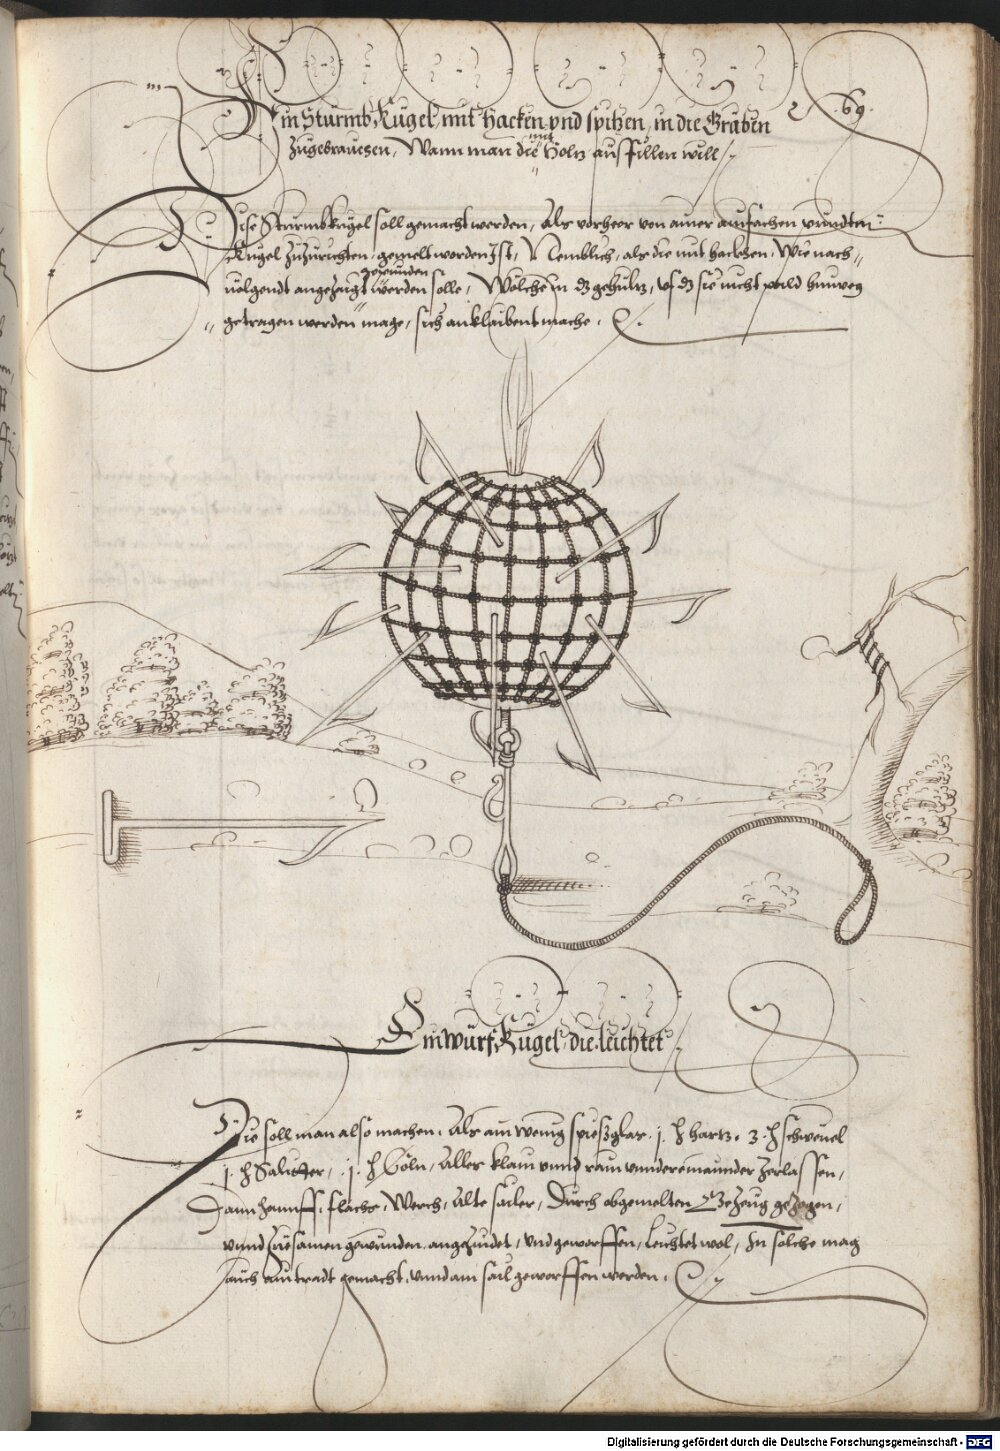 .69.
Ein Sturmb Kugel mit Hacken vnd spitzen, in die Gräben
zugebrauchen, Wann man die mit Holtz ausfüllen will
Dise Sturmbkugel soll gemacht werden, Als vorheer von ainer ainfachen rundten
Kugel zuzurichten gemelt worden ist, Nemblich, als die mit hackhen, Wie nach„
uolgendt angezaigt gefunden werden solle, Wölche in dz gehültz, vf dz sie nicht pald hinweg
getragen werden mage, sich anklaibent mache.
Ein würf Kugel die leichtet
Die soll man also machen. Als ain wenig spießglas. j. ℔ hartz. 3. ℔ schweuel
j. ℔ Saliter, j. ℔ Coln, Alles klain vnnd rain vnndereinannder zerlassen,
Dann hannff, flachs, Werch, Alte sailer, Durch obgemelten Gezeug gezogen,
vnnd zuesamen gewunden angezündet, vnd geworffen, leuchtet wol, In solche mag
auch ain tradt gemacht, vnnd am sail geworffen werden.
Digitalisierung gefördert durch die Deutsche Forschungsgemeinschaft - DFG